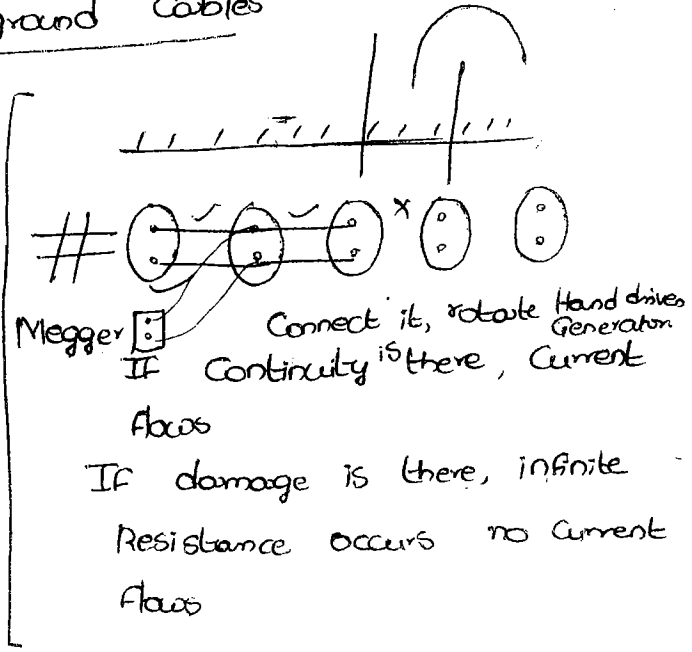 ground Cables
Megger
Connect it, rotate Hand drives
Generator
If Continuity is there, Current
flows
If damage is there, infinite
Resistance occurs no current
flows